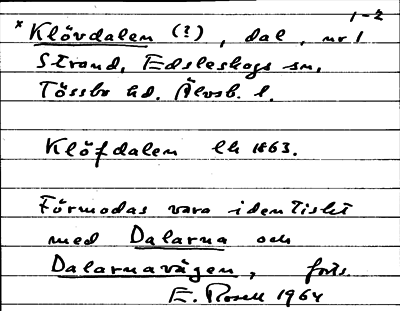 1-2
* Klövdalen (?), dal, nr 1
Strand, Edsleskogs sn,
Tössbo hd. Älvsb. l.
Klöfdalen lk 1863.
Förmodas vara identiskt
med Dalarna och
Dalarnavägen, forts.
E. Rosell 1964